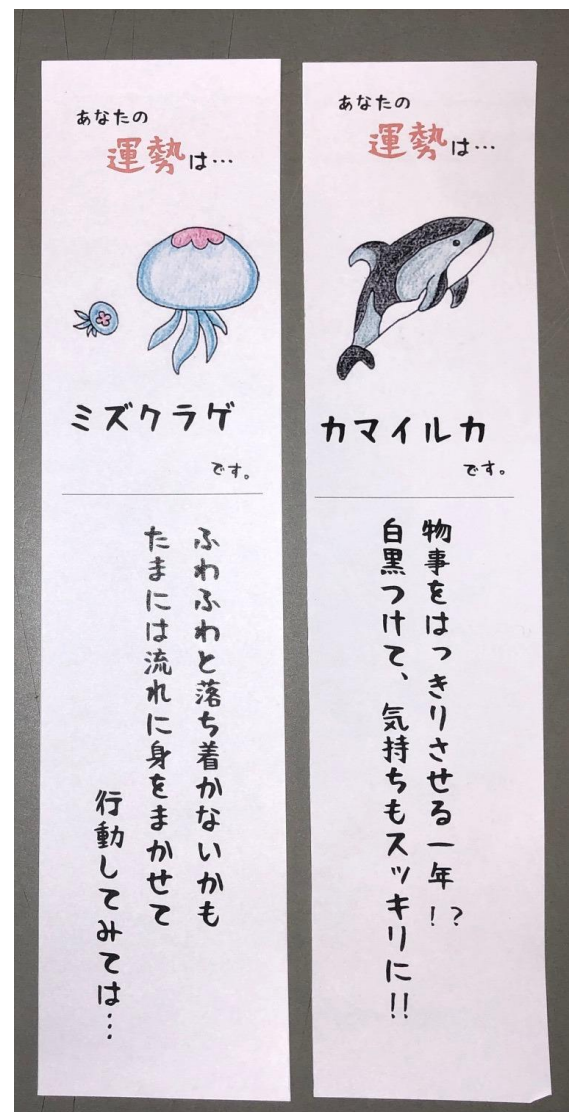 あなたの
運勢は…
ミズクラゲ
です。
ふわふわと落ち着かないかも
たまには流れに身をまかせて
行動してみては…
あなたの
運勢は…
カマイルカ
です。
物事をはっきりさせる一年!?
白黒つけて、気持ちもスッキリに!!